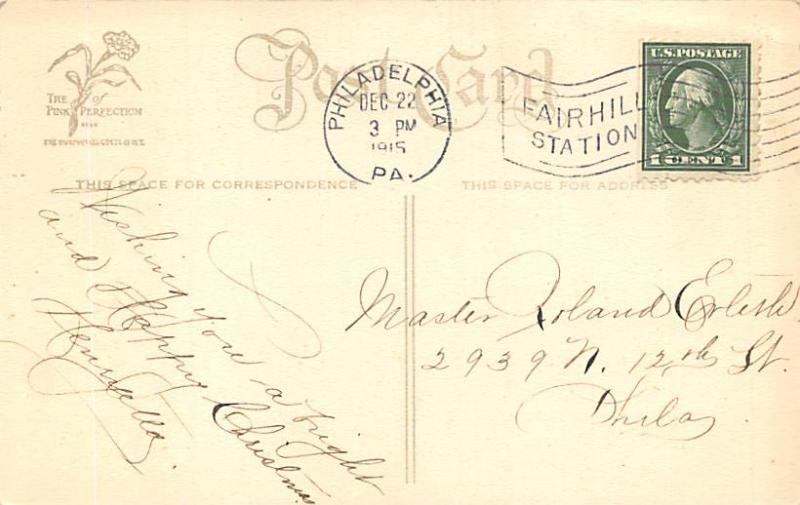 Post Card
THE PINK of PERFECTION
PHILADELPHIA
DEC 22
3 PM
1915
PA.
FAIRHILL
STATION
U.S. POSTAGE
1 CENT 1
THIS SPACE FOR CORRESPONDENCE
THIS SPACE FOR ADDRESS
Wishing you a bright
and Happy Christmas
Master Roland
2939 N. 12th St.
Phila